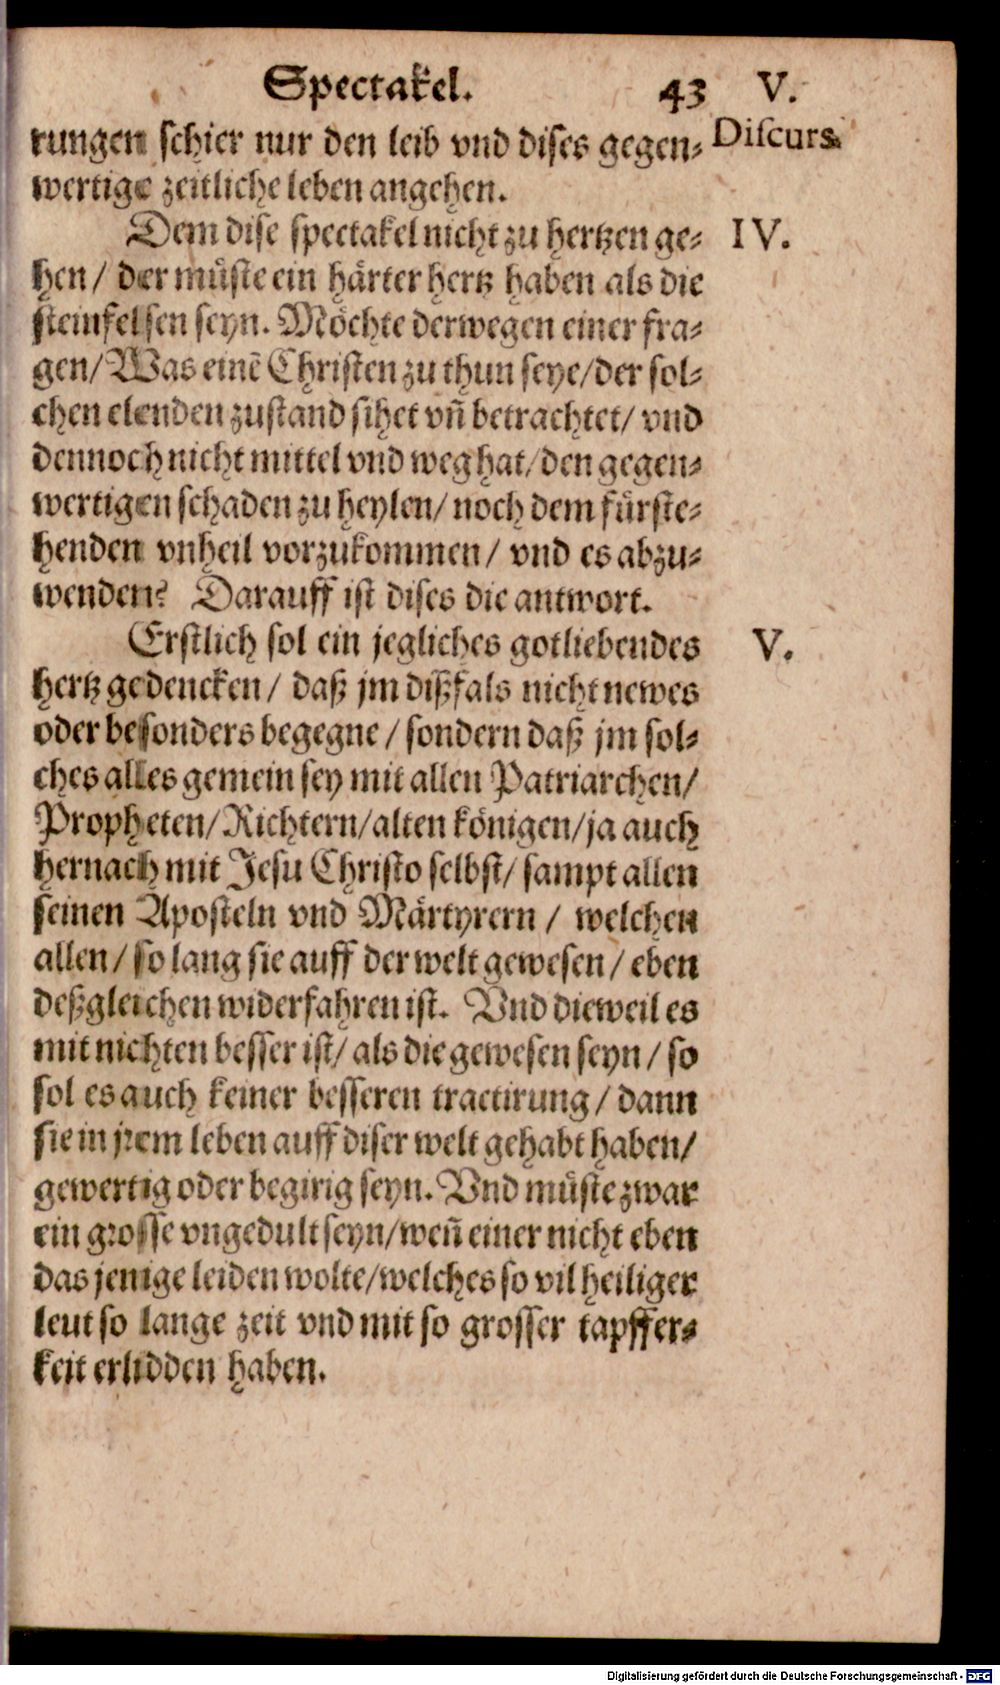 Spectakel. 43 V.
Discurs.
rungen schier nur den leib vnd dises gegen⸗
wertige zeitliche leben angehen.
Dem dise spectakel nicht zu hertzen ge⸗ IV.
hen / der müste ein härter hertz haben als die
steinfelsen seyn. Möchte derwegen einer fra⸗
gen/ Was einē Christen zu thun seye/ der sol⸗
chen elenden zustand sihet vñ betrachtet/ vnd
dennoch nicht mittel vnd weg hat/ den gegen⸗
wertigen schaden zu heylen/ noch dem fürste⸗
henden vnheil vorzukommen/ vnd es abzu⸗
wenden? Darauff ist dises die antwort.
Erstlich sol ein jegliches gotliebendes V.
hertz gedencken / daß jm dißfals nicht newes
oder besonders begegne / sondern daß jm sol⸗
ches alles gemein sey mit allen Patriarchen/
Propheten/ Richtern/ alten königen/ ja auch
hernach mit Jesu Christo selbst/ sampt allen
seinen Aposteln vnd Märtyrern / welchen
allen / so lang sie auff der welt gewesen / eben
deßgleichen widerfahren ist. Vnd dieweil es
mit nichten besser ist/ als die gewesen seyn / so
sol es auch keiner besseren tractirung / dann
sie in jrem leben auff diser welt gehabt haben/
gewertig oder begirig seyn. Vnd müste zwar
ein grosse vngedult seyn/ weñ einer nicht eben
das jenige leiden wolte/ welches so vil heiliger
leut so lange zeit vnd mit so grosser tapffer⸗
keit erlidden haben.
Digitalisierung gefördert durch die Deutsche Forschungsgemeinschaft - DFG